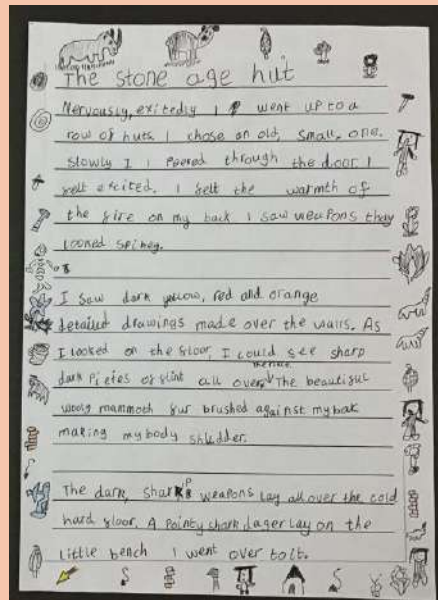 The stone age hut
Nervously, exitedly I went up to a
row of huts I chose an old, small, one.
Slowly I I peered through the door I
felt excited. I felt the warmth of
the fire on my back I saw weapons they
looked spikey.
I saw dark yellow, red and orange
detailed drawings made over the walls. As
I looked on the floor, I could see sharp
dark pieies of flint all over. The beautiful
wooly mammoth fur brushed against my bak
making my body shudder.
The dark, sharp weapons lay all over the cold
hard floor. A pointy shark dager lay on the
little bench I went over to it.